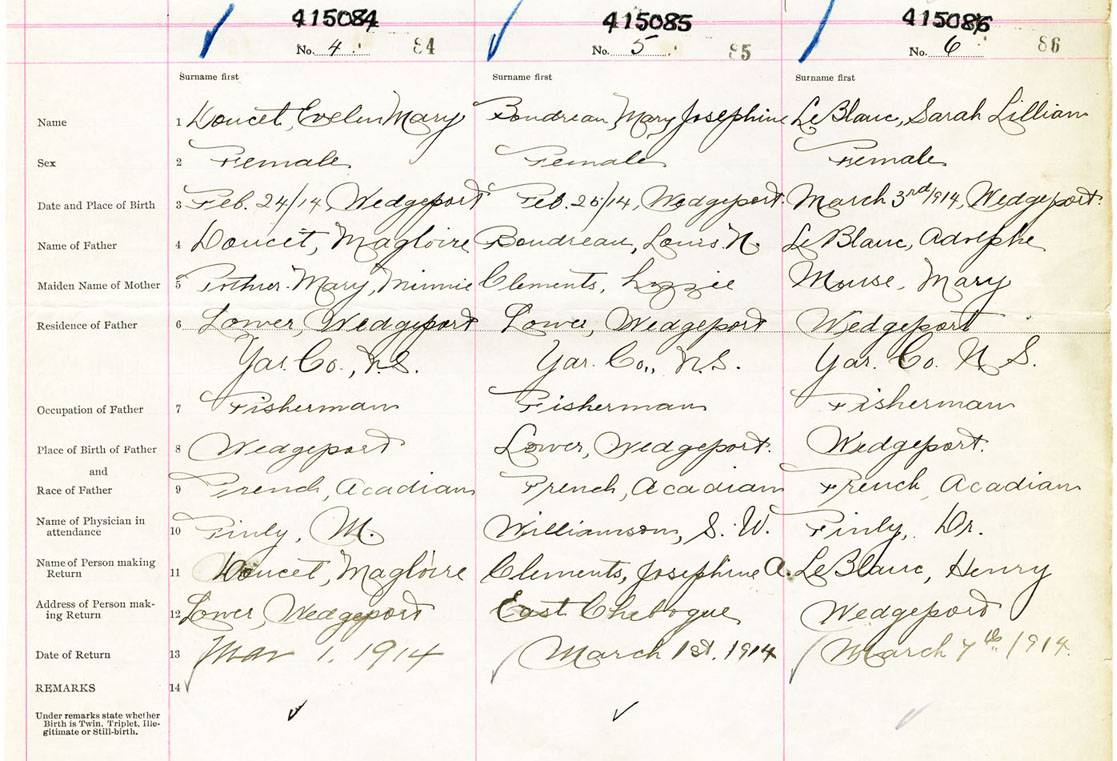 415084 415085 415086
No. 4 84 No. 5 85 No. 6 86
Surname first Surname first Surname first
Name 1 Doucet, Evelen Mary Boudreau, Mary, Josephine LeBlanc, Sarah Lillian
Sex 2 Female Female Female
Date and Place of Birth 3 Feb. 24/14, Wedgeport Feb. 26/14, Wedgeport. March 3rd/1914, Wedgeport.
Name of Father 4 Doucet, Magloire Boudreau, Louis N. LeBlanc, Adolphe
Maiden Name of Mother 5 Pothier. Mary, Minnie Clements, Lizzie Mouse, Mary
Residence of Father 6 Lower, Wedgeport Lower, Wedgeport Wedgeport
Yar. Co., N.S. Yar. Co., N.S. Yar. Co. N S.
Occupation of Father 7 Fisherman Fisherman Fisherman
Place of Birth of Father 8 Wedgeport Lower, Wedgeport. Wedgeport.
and
Race of Father 9 French, Acadian French, Acadian French, Acadian
Name of Physician in
attendance 10 Finly, M. Williamson, S. W. Finly, Dr.
Name of Person making
Return 11 Doucet, Magloire Clements, Josephine A. LeBlanc, Henry
Address of Person mak-
ing Return 12 Lower, Wedgeport East Chebogue Wedgeport
Date of Return 13 Mar 1, 1914 March 1st, 1914 March 7th, 1914.
REMARKS 14
Under remarks state whether
Birth is Twin, Triplet, Ille-
gitimate or Still-birth.